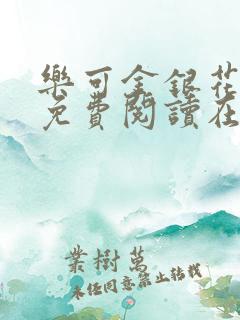 樂可金銀花
免費閱讀在
業樹萬
未经同意禁止转载